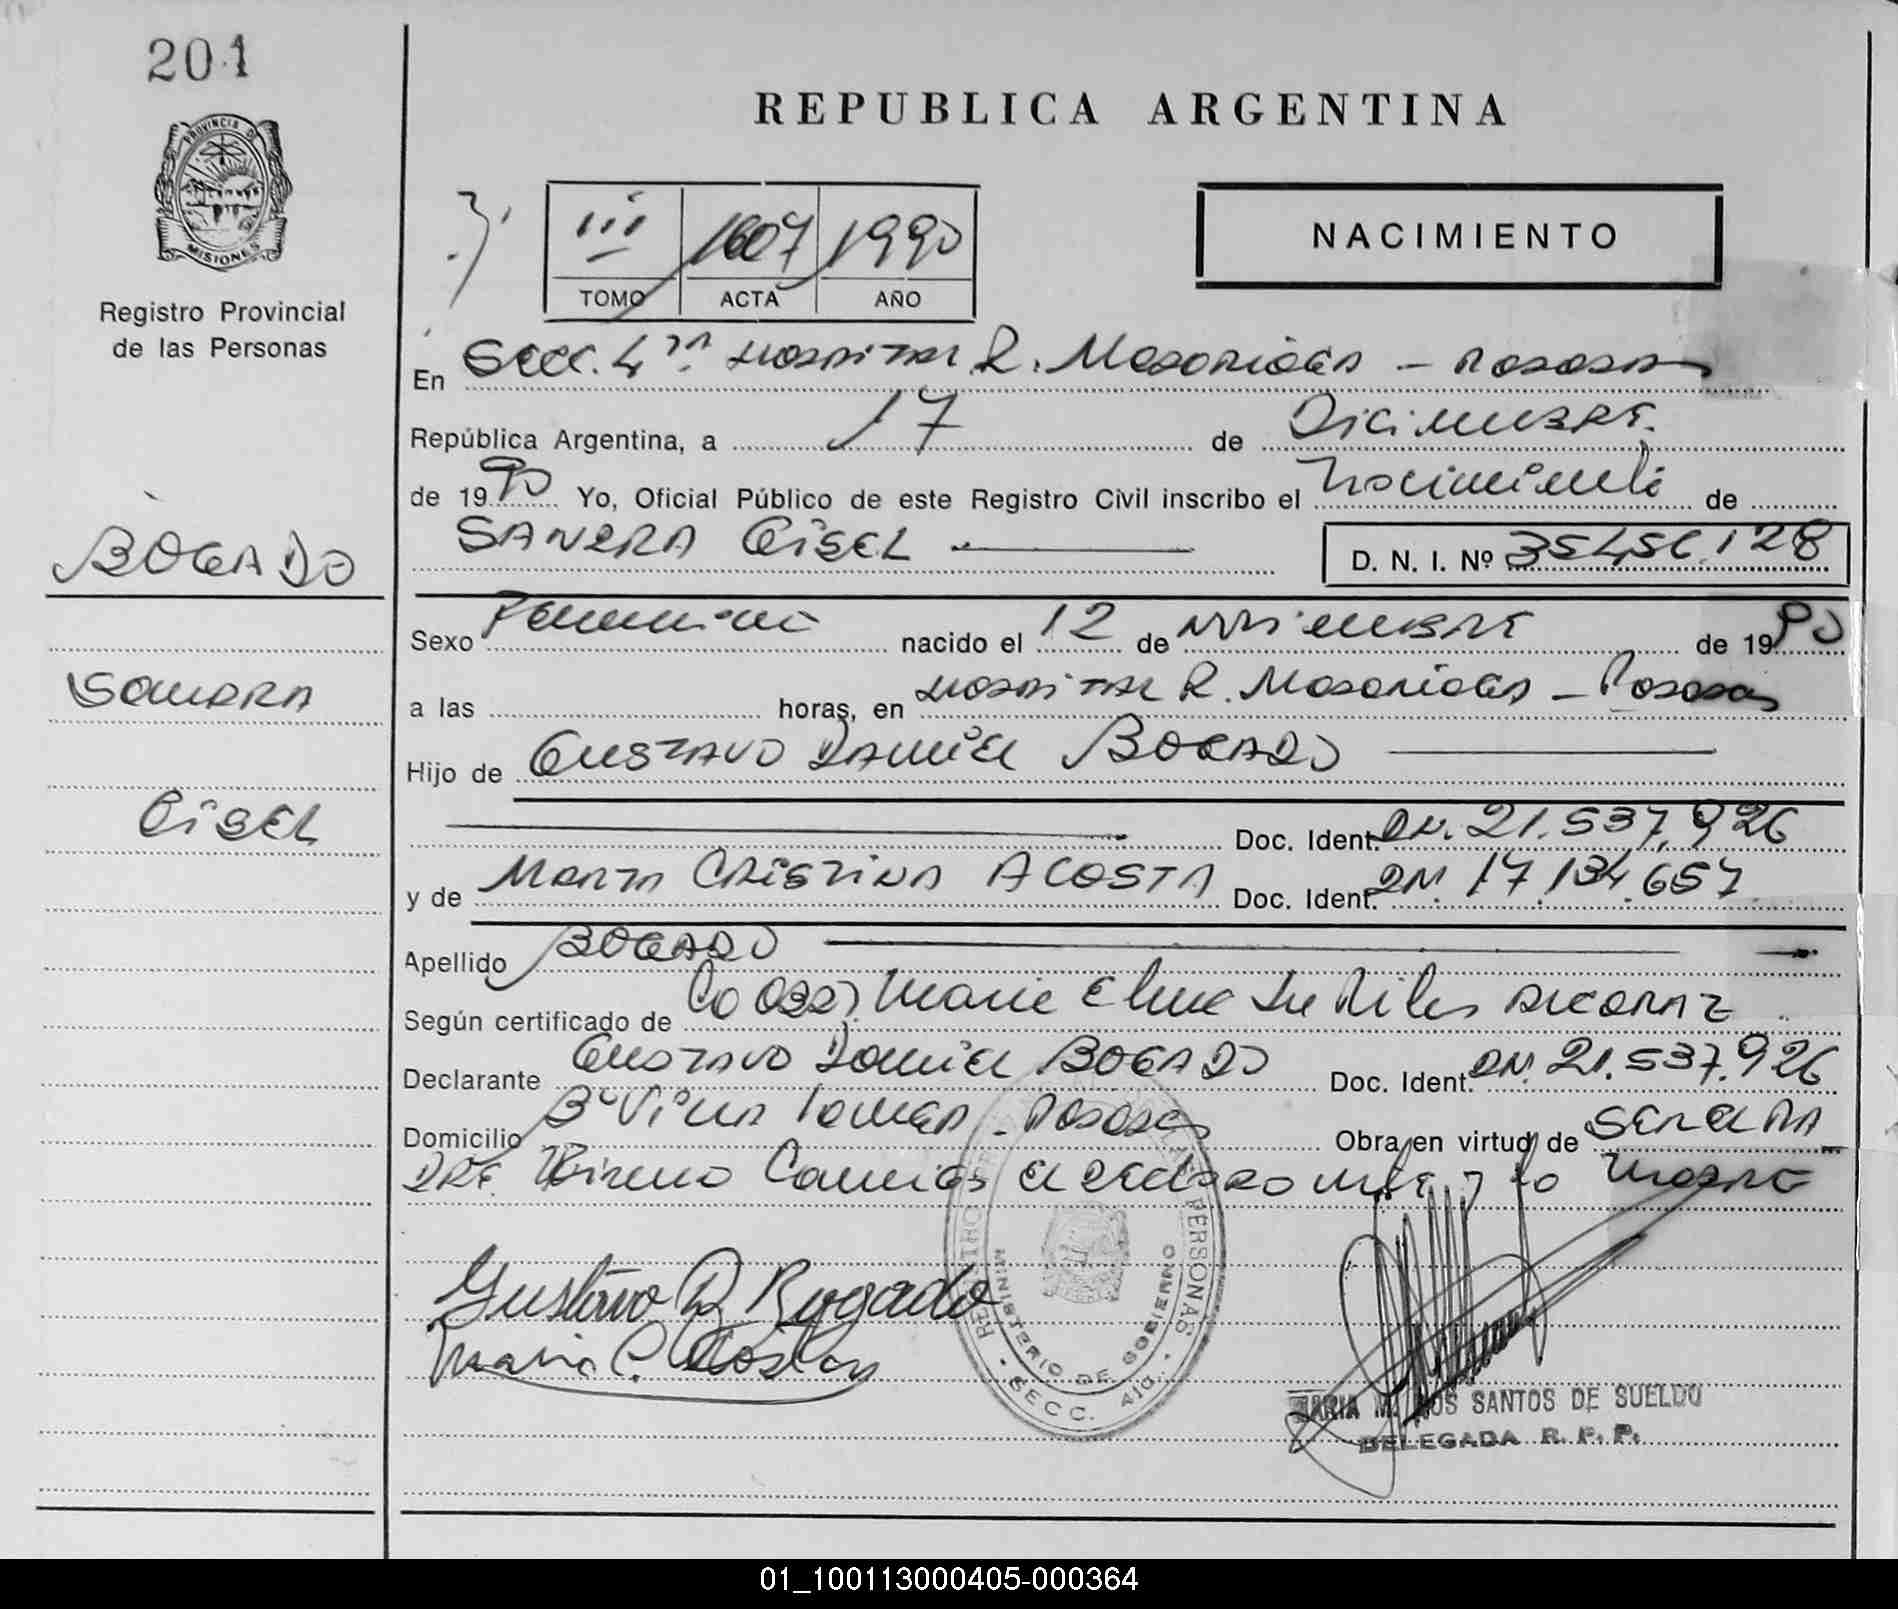 201
PROVINCIA DE
MISIONES
Registro Provincial
de las Personas
BOGADO
SANDRA
GISEL
REPUBLICA ARGENTINA
III 1607 1990
TOMO ACTA AÑO
NACIMIENTO
En Secc. 4ta Hospital R. Madariaga - Posadas
República Argentina, a 17 de Diciembre.
de 1990 Yo, Oficial Público de este Registro Civil inscribo el Nacimiento de
SANDRA GISEL
D. N. I. Nº 35456.128
Sexo Femenino nacido el 12 de Noviembre de 1990
a las horas, en Hospital R. Madariaga - Posadas
Hijo de Gustavo Daniel BOGADO
Doc. Ident. DN. 21.537.926
y de Maria Cristina ACOSTA Doc. Ident. DN. 17.134.657
Apellido BOGADO
Según certificado de Maria Elena de
Declarante Gustavo Daniel BOGADO Doc. Ident. DN. 21.537.926
Domicilio Bº Villa Posadas Obra en virtud de
el declarante y la madre
Gustavo D Bogado
Maria C. Acosta
REGISTRO PERSONAS
MINISTERIO DE GOBIERNO
SECC. 4ta.
MARIA M. DOS SANTOS DE SUELDO
DELEGADA R. P. P.
01_100113000405-000364